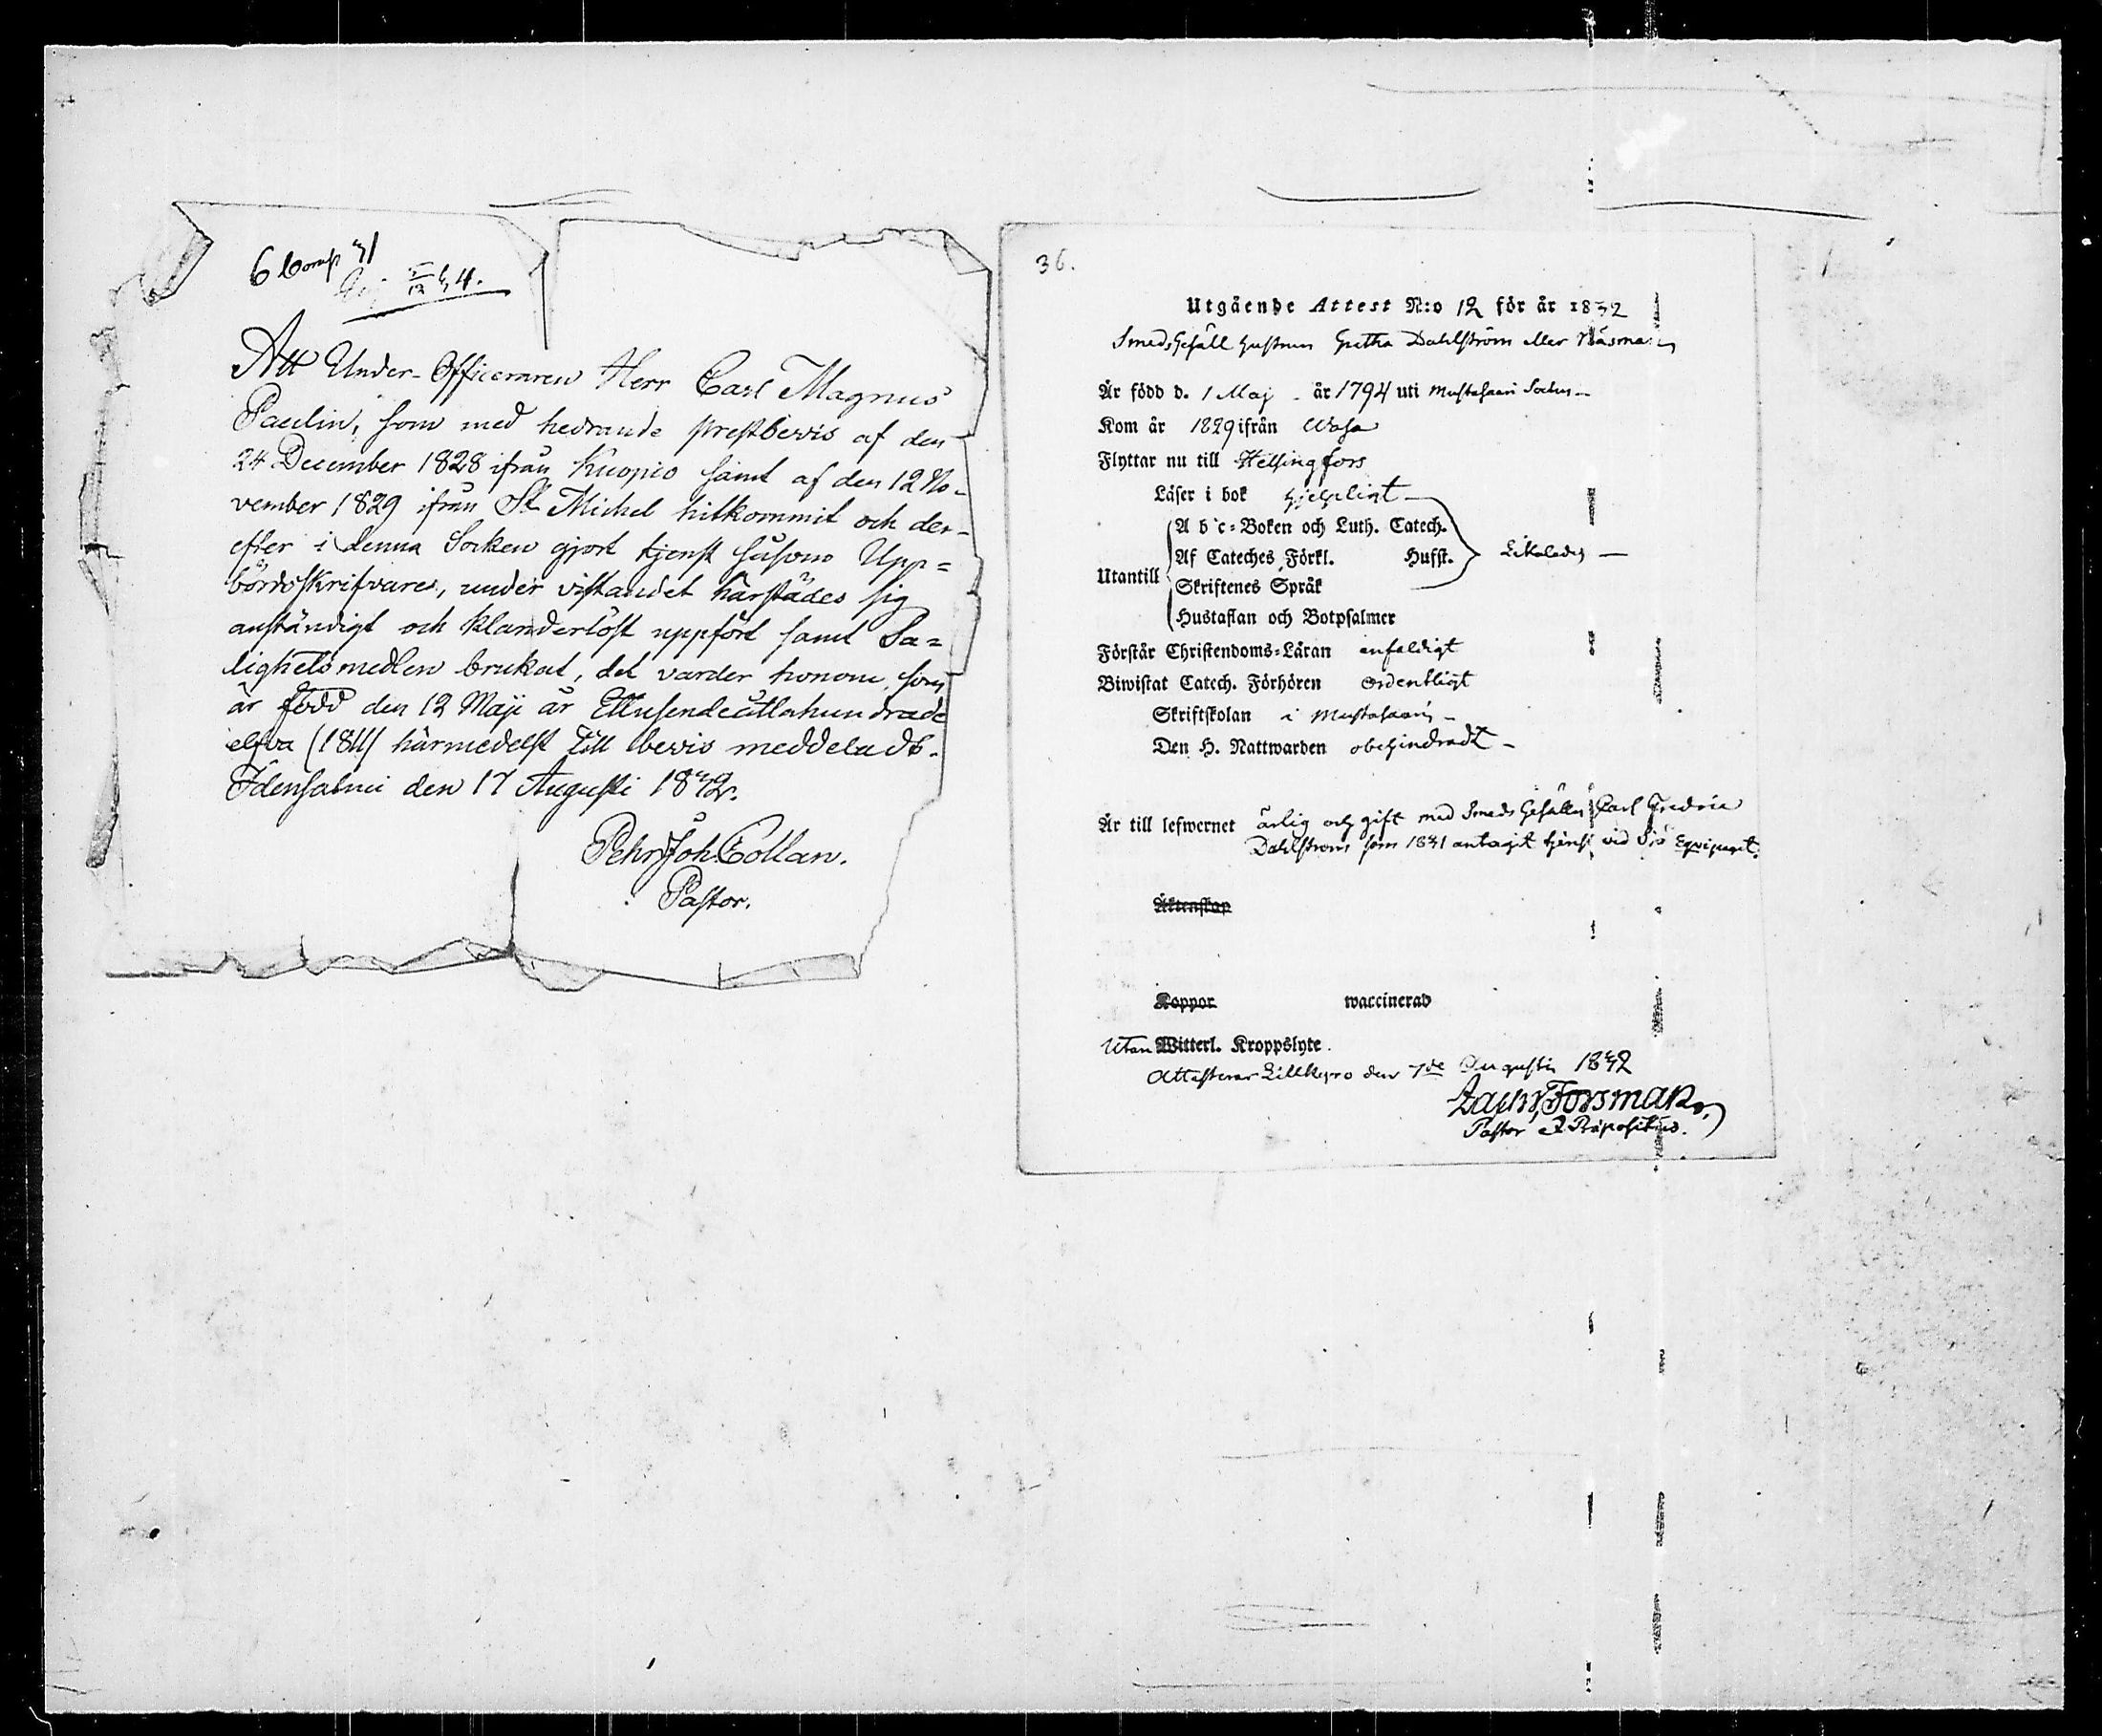 6 Comp 31
5/12 34.
Att Under-Officeraren Herr Carl Magnus
Paulin, som med hedrande prestbevis af den
24 December 1828 ifrån Kuopio samt af den 12 No-
vember 1829 ifrån St Michel hitkommit och der-
efter i denna Socken gjort tjenst såsom Upp=
bördsskrifvare, under vistandet härstädes sig
anständigt och klanderlöst uppfört samt Sa=
lighetsmedlen brukat, det varder honom, som
är född den 12 Maji år Ettusendeåttahundrade
elfva (1811) härmedelst till bevis meddeladt.
Idensalmi den 17 Augusti 1832.
Pehr Joh Collan.
Pastor.
36.
Utgående Attest N:o 12 för år 1832
SmedsGesäll hustrun Gretha Dahlström eller Näsman
Är född d. 1 Maj år 1794 uti Mustasaari Socken
Kom år 1829 ifrån Wasa
Flyttar nu till Helsingfors
Läser i bok hjelpligt
Utantill
A b c=Boken och Luth. Catech.
Af Cateches Förkl. Hufst.
Skriftenes Språk
Hustaflan och Botpsalmer
Likaledes
Förstår Christendoms=Läran enfaldigt
Biwistat Catech. Förhören ordentligt
Skriftskolan i Mustasaari
Den H. Nattwarden obehindradt
Är till lefwernet ärlig och gift med Smeds Gesällen Carl Fredric
Dahlström som 1831 antagit tjenst vid Sjö Equipaget.
Äktenskap
Koppor waccinerad
Utan Witterl. Kroppslyte.
Attesterar Lillkyro den 7de Augusti 1832
Zachr. Forsman
Pastor & Präpositus.